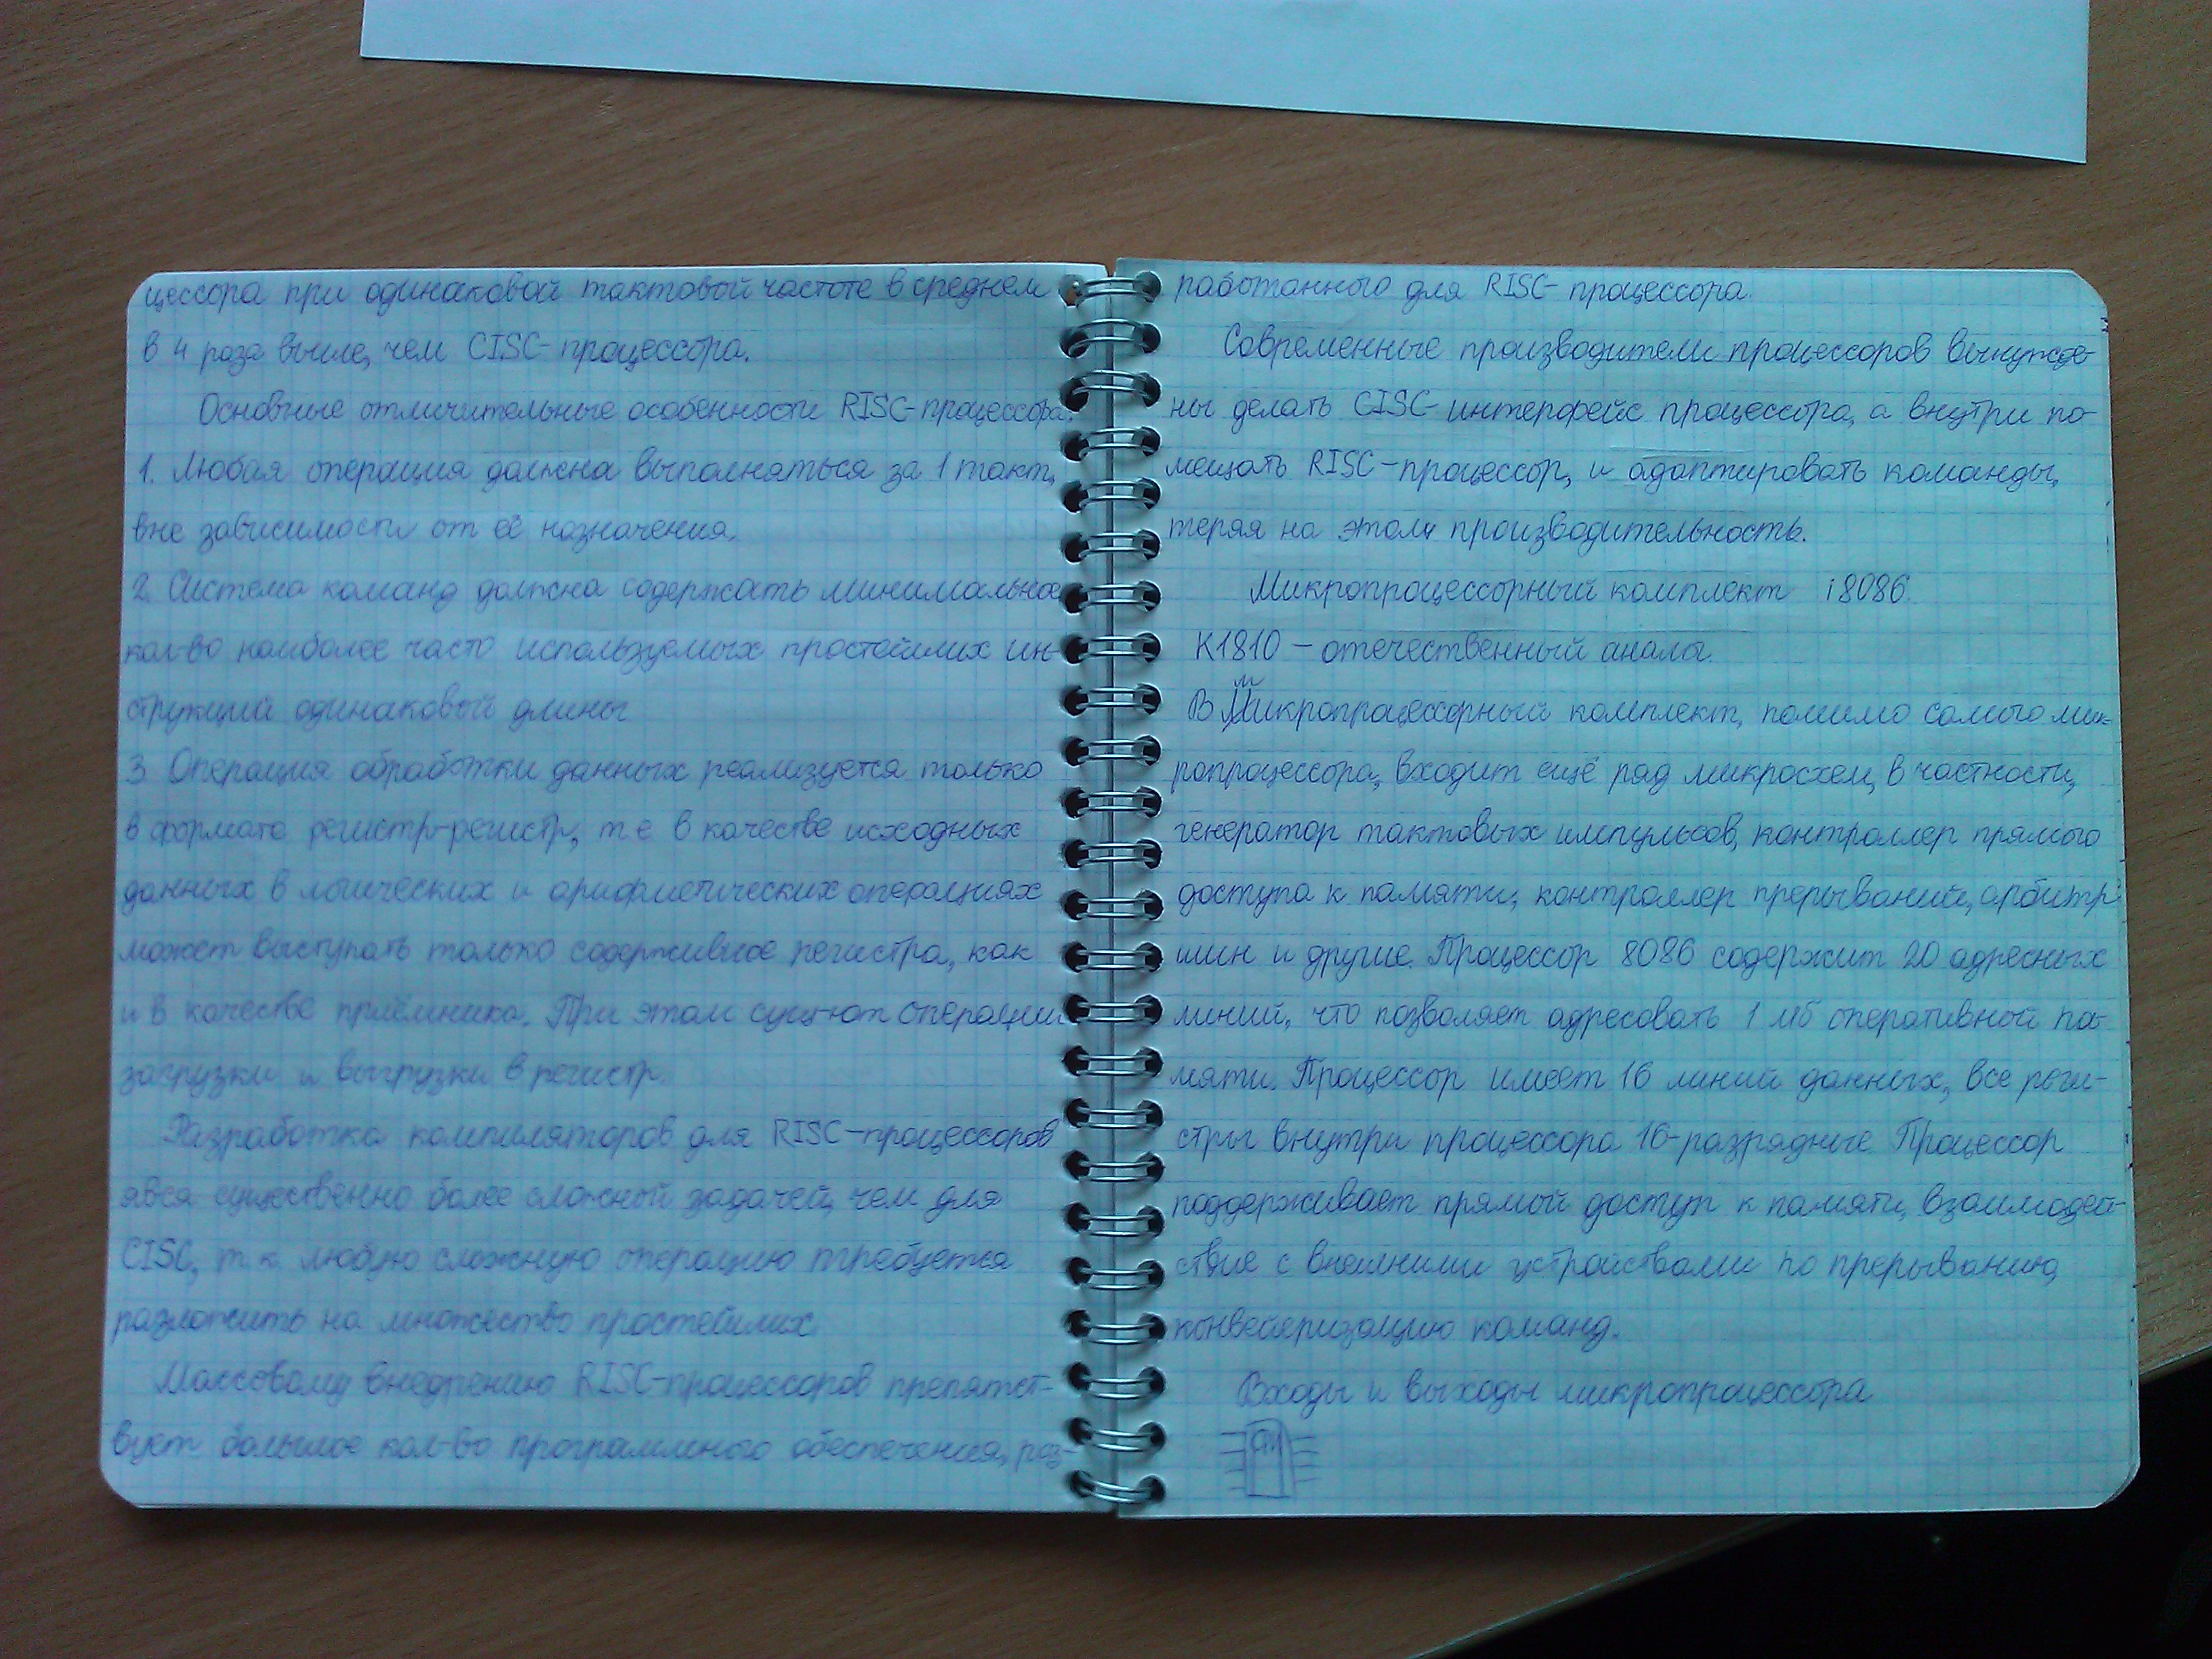 цессора при одинаковой тактовой частоте в среднем
в 4 раза выше, чем CISC-процессора.
Основные отличительные особенности RISC-процессора.
1. Любая операция должна выполняться за 1 такт,
вне зависимости от её назначения.
2. Система команд должна содержать минимальное
кол-во наиболее часто используемых простейших ин-
струкций одинаковой длины
3. Операция обработки данных реализуется только
в формате регистр-регистр, т.е в качестве исходных
данных в логических и арифметических операциях
может выступать только содержимое регистра, как
и в качестве приёмника. При этом сущ-ют операции
загрузки и выгрузки в регистр.
Разработка компиляторов для RISC-процессоров
явся существенно более сложной задачей, чем для
CISC, т.к. любую сложную операцию требуется
разложить на множество простейших
Массовому внедрению RISC-процессоров препятст-
вует большое кол-во программного обеспечения, раз-
работанного для RISC-процессора.
Современные производители процессоров вынужде-
ны делать CISC-интерфейс процессора, а внутри по-
мещать RISC-процессор, и адаптировать команды,
теряя на этом производительность.
Микропроцессорный комплект i8086.
К1810 – отечественный аналог.
В микропроцессорный комплект, помимо самого мик-
ропроцессора, входит ещё ряд микросхем, в частности,
генератор тактовых импульсов, контроллер прямого
доступа к памяти, контроллер прерываний, арбитр
шин и другие. Процессор 8086 содержит 20 адресных
линий, что позволяет адресовать 1 Мб оперативной па-
мяти. Процессор имеет 16 линий данных, все реги-
стры внутри процессора 16-разрядные. Процессор
поддерживает прямой доступ к памяти, взаимодей-
ствие с внешними устройствами по прерыванию,
конвейеризацию команд.
Входы и выходы микропроцессора